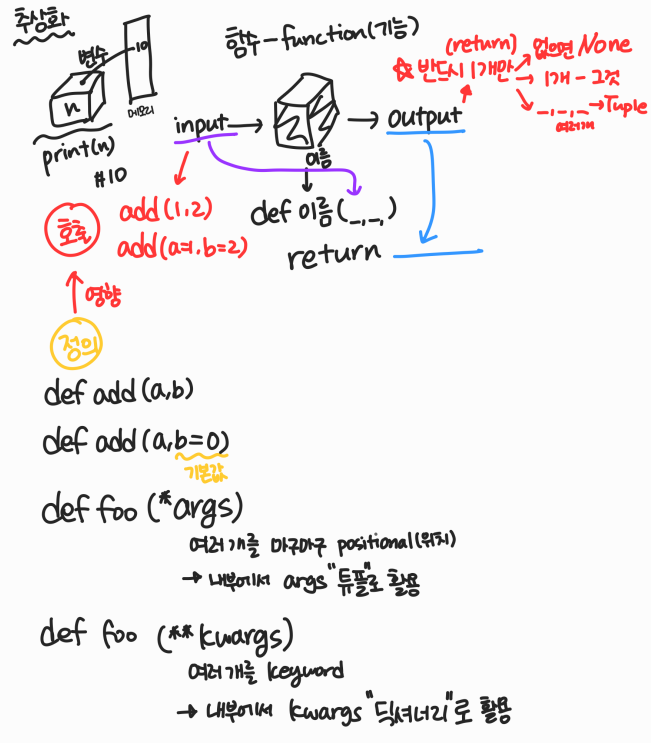 추상화
변수
10
n
메모리
print(n)
#10
함수 - function(기능)
input → → output
이름
def 이름(_,_,)
return
(return)
☆ 반드시 1개만
없으면 None
1개 - 그것
_,_,_ → Tuple
여러개
호출
add(1,2)
add(a=1,b=2)
영향
정의
def add(a,b)
def add(a,b=0)
기본값
def foo (*args)
여러개를 마구마구 positional(위치)
→ 내부에서 args "튜플"로 활용
def foo (**kwargs)
여러개를 keyword
→ 내부에서 kwargs "딕셔너리"로 활용